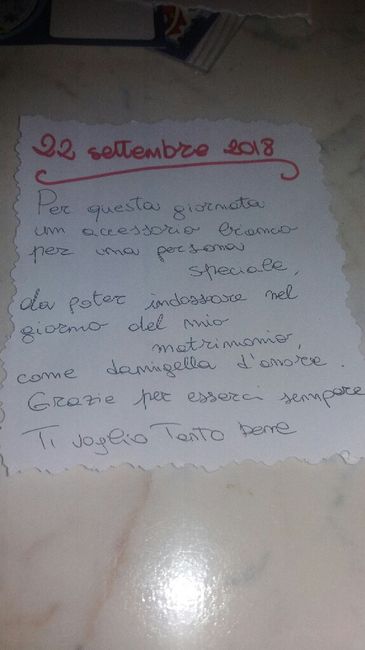 22 settembre 2018
Per questa giornata
un accessorio bianco
per una persona
speciale,
da poter indossare nel
giorno del mio
matrimonio,
come damigella d'onore.
Grazie per esserci sempre
Ti voglio Tanto bene